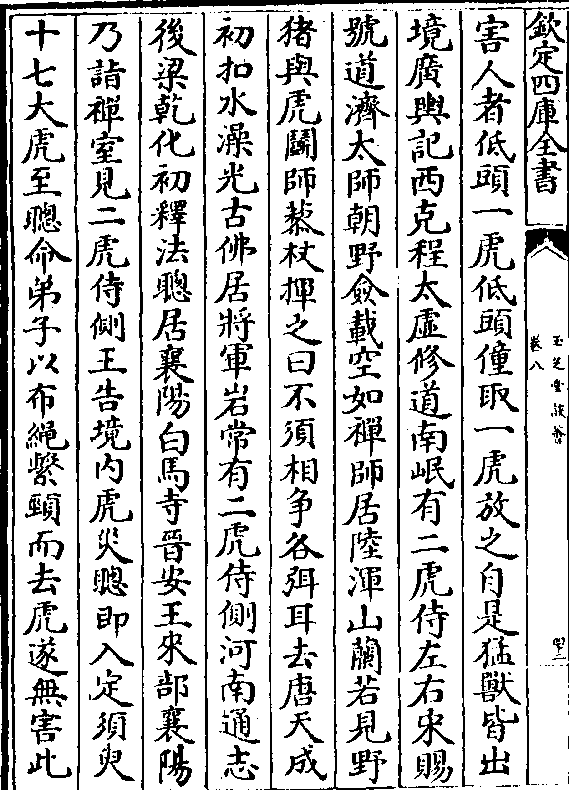 欽定四庫全書
玉芝堂談薈
卷八
害人者低頭一虎低頭僮取一虎放之自是猛獸皆出
境廣輿記西克程太虛修道南岷有二虎侍左右宋賜
號道濟太師朝野僉載空如禪師居陸渾山蘭若見野
猪與虎鬭師藜杖揮之曰不須相争各弭耳去唐天成
初扣水澡光古佛居將軍岩常有二虎侍側河南通志
後梁乾化初釋法聰居襄陽白馬寺晉安王來部襄陽
乃詣禪室見二虎侍側王告境内虎災聰即入定須臾
十七大虎至聰命弟子以布繩繫頸而去虎遂無害此